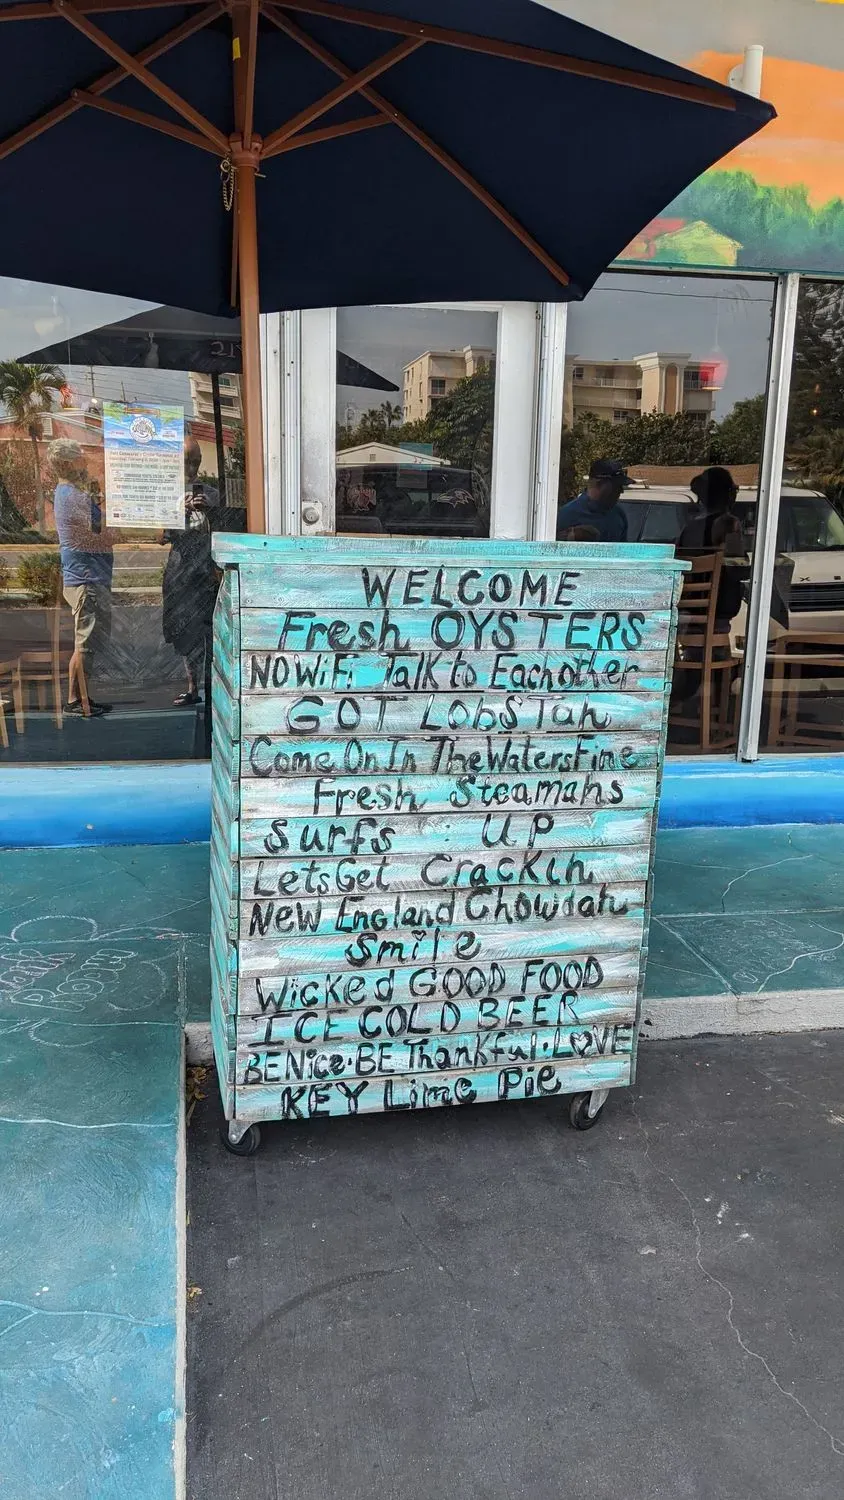 WELCOME
Fresh OYSTERS
NO WiFi Talk to Eachother
GOT LobsTah
Come On In The Waters Fine
Fresh Steamahs
Surfs : UP
Lets Get Crackin
New England Chowdah
Smile
Wicked GOOD FOOD
ICE COLD BEER
BE Nice · BE Thankful · LOVE
KEY Lime Pie